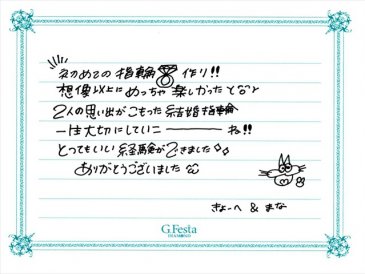 初めての指輪作り!!
想像以上にめっちゃ楽しかったなぁと
2人の思い出がこもった結婚指輪
一生大切にしていこーーーね!!
とってもいい経験ができました
ありがとうございました
きょーへ & まな
G.Festa
DIAMOND